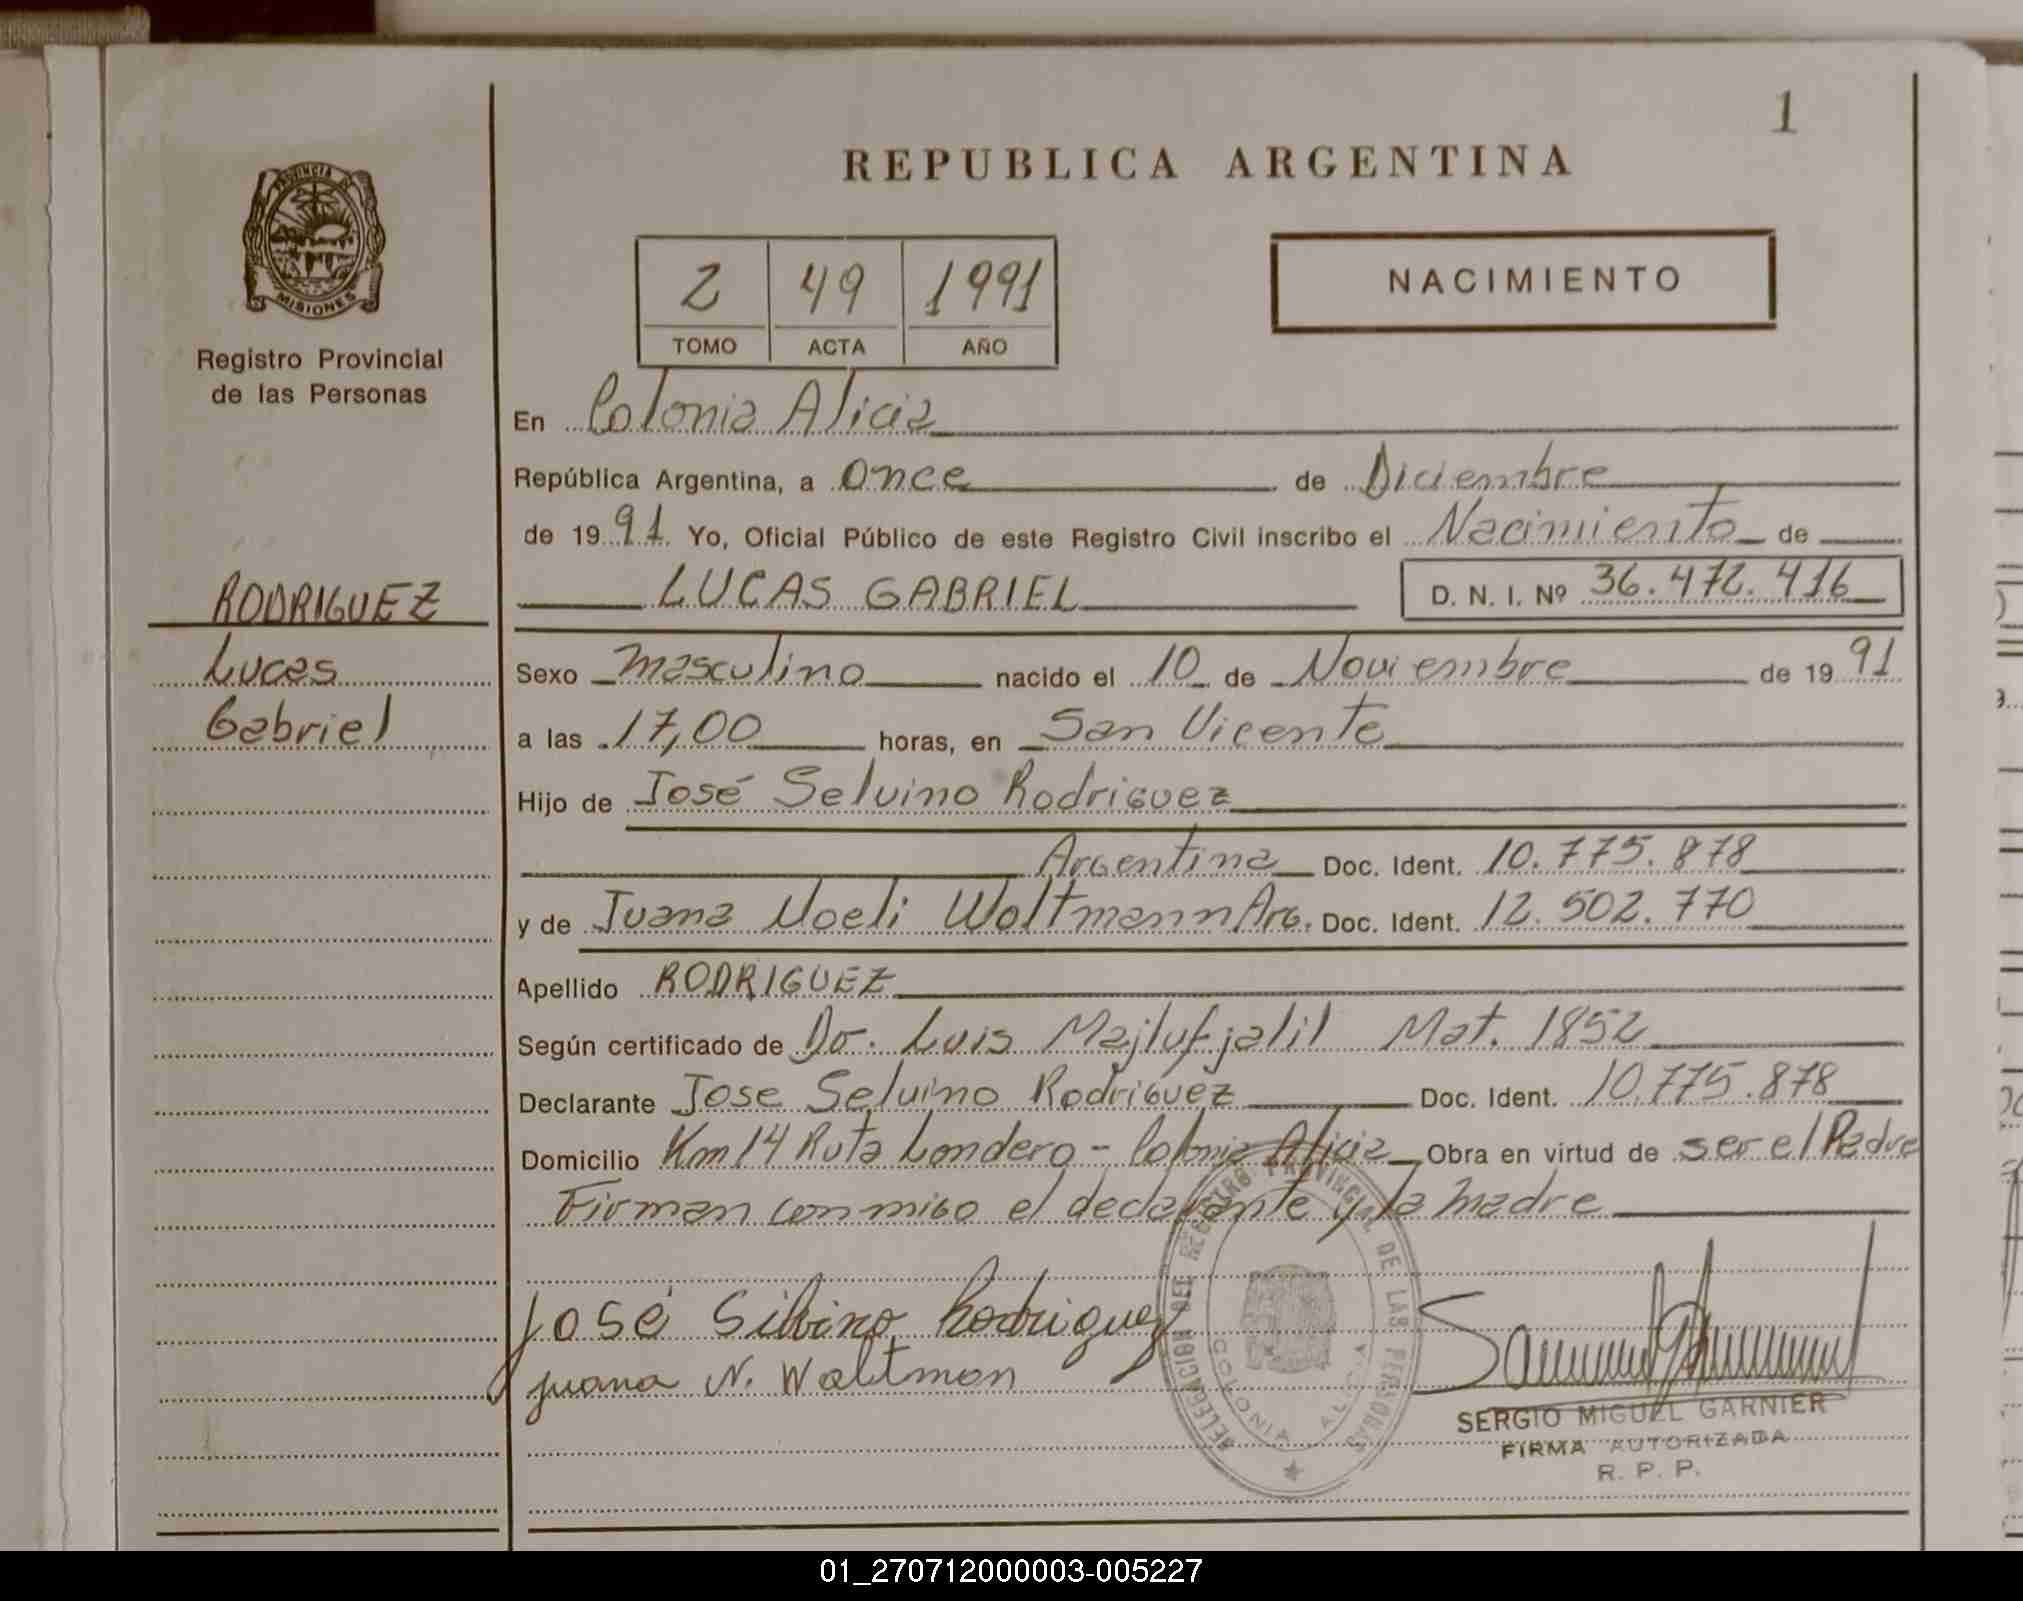 1
REPUBLICA ARGENTINA
PROVINCIA DE
MISIONES
Registro Provincial
de las Personas
2 49 1991
TOMO ACTA AÑO
NACIMIENTO
En Colonia Alicia
República Argentina, a Once de Diciembre
de 1991 Yo, Oficial Público de este Registro Civil inscribo el Nacimiento de
LUCAS GABRIEL D. N. I. Nº 36.472.416
RODRIGUEZ
Lucas
Gabriel
Sexo Masculino nacido el 10 de Noviembre de 1991
a las 17,00 horas, en San Vicente
Hijo de José Seluino Rodriguez
Argentina Doc. Ident. 10.775.878
y de Juana Noeli Woltmann Arg. Doc. Ident. 12.502.770
Apellido RODRIGUEZ
Según certificado de Dr. Luis Majluf jalil Mat. 1852
Declarante Jose Seluino Rodriguez Doc. Ident. 10.775.878
Domicilio Km 14 Ruta Londero - Colonia Alicia Obra en virtud de ser el Padre
Firman conmigo el declarante y la Madre
José Silbino Rodriguez
juana N. Waltman
DELEGACION DEL REGISTRO PROVINCIAL DE LAS PERSONAS
COLONIA ALICIA
SERGIO MIGUEL GARNIER
FIRMA AUTORIZADA
R. P. P.
01_270712000003-005227